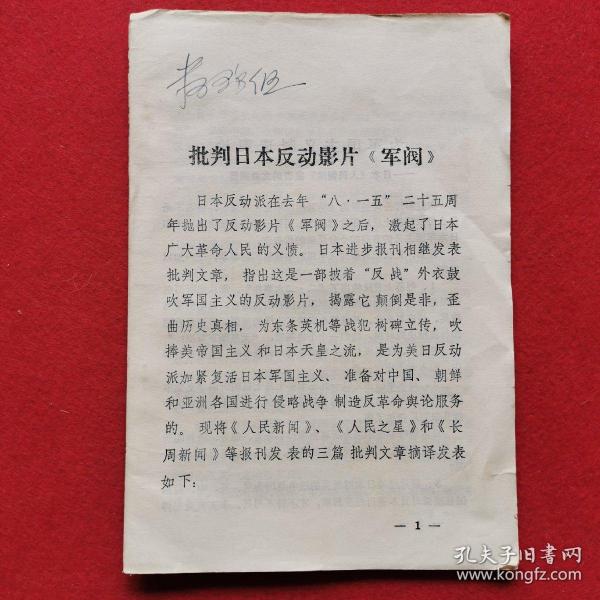 批判日本反动影片《军阀》
日本反动派在去年“八·一五”二十五周
年抛出了反动影片《军阀》之后，激起了日本
广大革命人民的义愤。日本进步报刊相继发表
批判文章，指出这是一部披着“反战”外衣鼓
吹军国主义的反动影片，揭露它颠倒是非，歪
曲历史真相，为东条英机等战犯树碑立传，吹
捧美帝国主义和日本天皇之流，是为美日反动
派加紧复活日本军国主义、准备对中国、朝鲜
和亚洲各国进行侵略战争制造反革命舆论服务
的。现将《人民新闻》、《人民之星》和《长
周新闻》等报刊发表的三篇批判文章摘译发表
如下：
— 1 —
孔夫子旧书网
www.kongfz.com